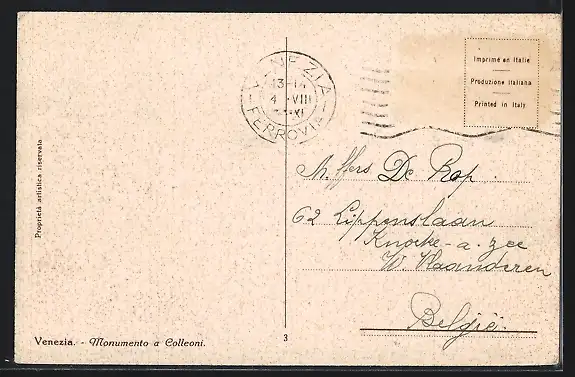 VENEZIA
13-14
4 VIII
XI
FERROVIA
Imprimé en Italie
Produzione italiana
Printed in Italy
Proprietà artistica riservata
De Rop.
62 Lippenslaan
Knocke-a-zee
W. Vlaanderen
België.
Venezia. - Monumento a Colleoni.
3